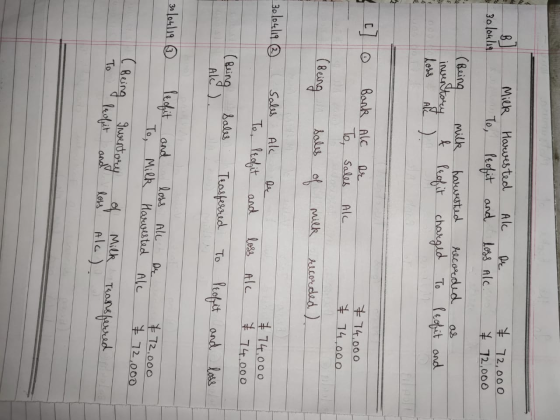 B]
30/04/19 Milk Harvested A/c Dr ¥ 72,000
To, Profit and loss A/c ¥ 72,000
(Being milk harvested recorded as
inventory & Profit charged To Profit and
loss A/c).
C] ① Bank A/c Dr ¥ 74,000
To, Sales A/c ¥ 74,000
(Being Sales of milk recorded).
30/04/19 ② Sales A/c Dr ¥ 74,000
To, Profit and loss A/c ¥ 74,000
(Being Sales Trasferred To Profit and loss
A/c).
30/04/19 ③ Profit and loss A/c Dr ¥ 72,000
To, Milk Harvested A/c ¥ 72,000
(Being Inventory of Milk Transferred
To Profit and loss A/c).